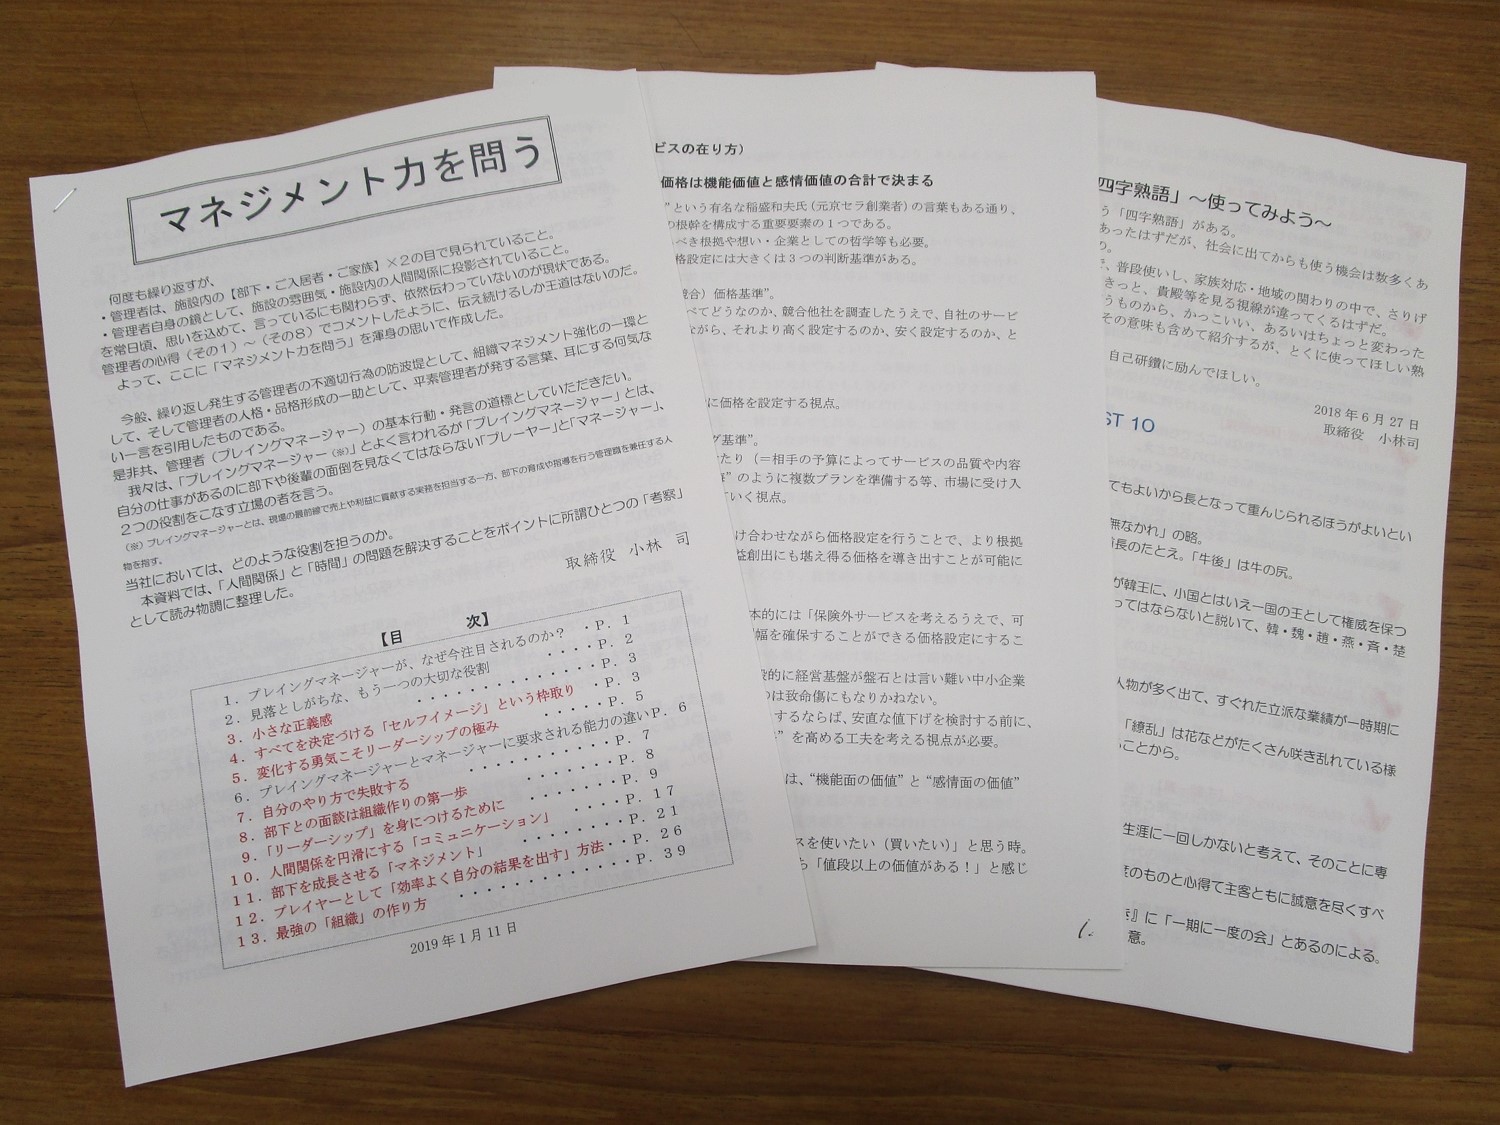 マネジメント力を問う
何度も繰り返すが、
・管理者は、施設内の【部下・ご入居者・ご家族】×２の目で見られていること。
・管理者自身の鏡として、施設の雰囲気・施設内の人間関係に投影されていること。
を常日頃、思いを込めて、言っているにも関わらず、依然伝わっていないのが現状である。
管理者の心得（その１）～（その８）でコメントしたように、伝え続けるしか王道はないのだ。
よって、ここに「マネジメント力を問う」を渾身の思いで作成した。
今般、繰り返し発生する管理者の不適切行為の防波堤として、組織マネジメント強化の一環と
して、そして管理者の人格・品格形成の一助として、平素管理者が発する言葉、耳にする何気な
い一言を引用したものである。
是非共、管理者（プレイングマネージャー）の基本行動・発言の道標としていただきたい。
我々は、「プレイングマネージャー（※）」とよく言われるが「プレイングマネージャー」とは、
自分の仕事があるのに部下や後輩の面倒を見なくてはならない「プレーヤー」と「マネージャー」、
２つの役割をこなす立場の者を言う。
（※）プレイングマネージャーとは、現場の最前線で売上や利益に貢献する実務を担当する一方、部下の育成や指導を行う管理職を兼任する人
物を指す。
当社においては、どのような役割を担うのか。
本資料では、「人間関係」と「時間」の問題を解決することをポイントに所謂ひとつの「考察」
として読み物調に整理した。
取締役　小林　司
【目　　次】
１．プレイングマネージャーが、なぜ今注目されるのか？　・Ｐ．１
２．見落としがちな、もう一つの大切な役割　・・・・Ｐ．２
３．小さな正義感　・・・・・・・・・・・・Ｐ．３
４．すべてを決定づける「セルフイメージ」という枠取り　・Ｐ．３
５．変化する勇気こそリーダーシップの極み　・・・・・Ｐ．５
６．プレイングマネージャーとマネージャーに要求される能力の違いＰ．６
７．自分のやり方で失敗する　・・・・・・・・・・Ｐ．７
８．部下との面談は組織作りの第一歩　・・・・・・・Ｐ．８
９．「リーダーシップ」を身につけるために　・・・・・・Ｐ．９
１０．人間関係を円滑にする「コミュニケーション」　・・・・Ｐ．１７
１１．部下を成長させる「マネジメント」　・・・・・・・・Ｐ．２１
１２．プレイヤーとして「効率よく自分の結果を出す」方法・・Ｐ．２６
１３．最強の「組織」の作り方　・・・・・・・・・・・・Ｐ．３９
2019年1月11日
ビスの在り方）
価格は機能価値と感情価値の合計で決まる
”という有名な稲盛和夫氏（元京セラ創業者）の言葉もある通り、
の根幹を構成する重要要素の１つである。
べき根拠や想い・企業としての哲学等も必要。
格設定には大きくは３つの判断基準がある。
競合）価格基準”。
べてどうなのか、競合他社を調査したうえで、自社のサービ
ながら、それより高く設定するのか、安く設定するのか、と
に価格を設定する視点。
グ基準”。
たり（＝相手の予算によってサービスの品質や内容
”のように複数プランを準備する等、市場に受け入
ていく視点。
け合わせながら価格設定を行うことで、より根拠
益創出にも堪え得る価格を導き出すことが可能に
本的には「保険外サービスを考えるうえで、可
幅を確保することができる価格設定にするこ
般的に経営基盤が盤石とは言い難い中小企業
のは致命傷にもなりかねない。
するならば、安直な値下げを検討する前に、
”を高める工夫を考える視点が必要。
は、“機能面の価値”と“感情面の価値”
スを使いたい（買いたい）」と思う時。
ち「値段以上の価値がある！」と感じ
四字熟語」～使ってみよう～
う「四字熟語」がある。
あったはずだが、社会に出てからも使う機会は数多くあ
り。
、普段使いし、家族対応・地域の関わりの中で、さりげ
きっと、貴殿等を見る視線が違ってくるはずだ。
うものから、かっこいい、あるいはちょっと変わった
その意味も含めて紹介するが、とくに使ってほしい熟
自己研鑽に励んでほしい。
2018年6月27日
取締役　小林司
ST 10
てもよいから長となって重んじられるほうがよいとい
無なかれ」の略。
酋長のたとえ。「牛後」は牛の尻。
が韓王に、小国とはいえ一国の王として権威を保つ
ってはならないと説いて、韓・魏・趙・燕・斉・楚
人物が多く出て、すぐれた立派な業績が一時期に
「繚乱」は花などがたくさん咲き乱れている様
ことから。
生涯に一回しかないと考えて、そのことに専
度のものと心得て主客ともに誠意を尽くすべ
』に「一期に一度の会」とあるのによる。
意。